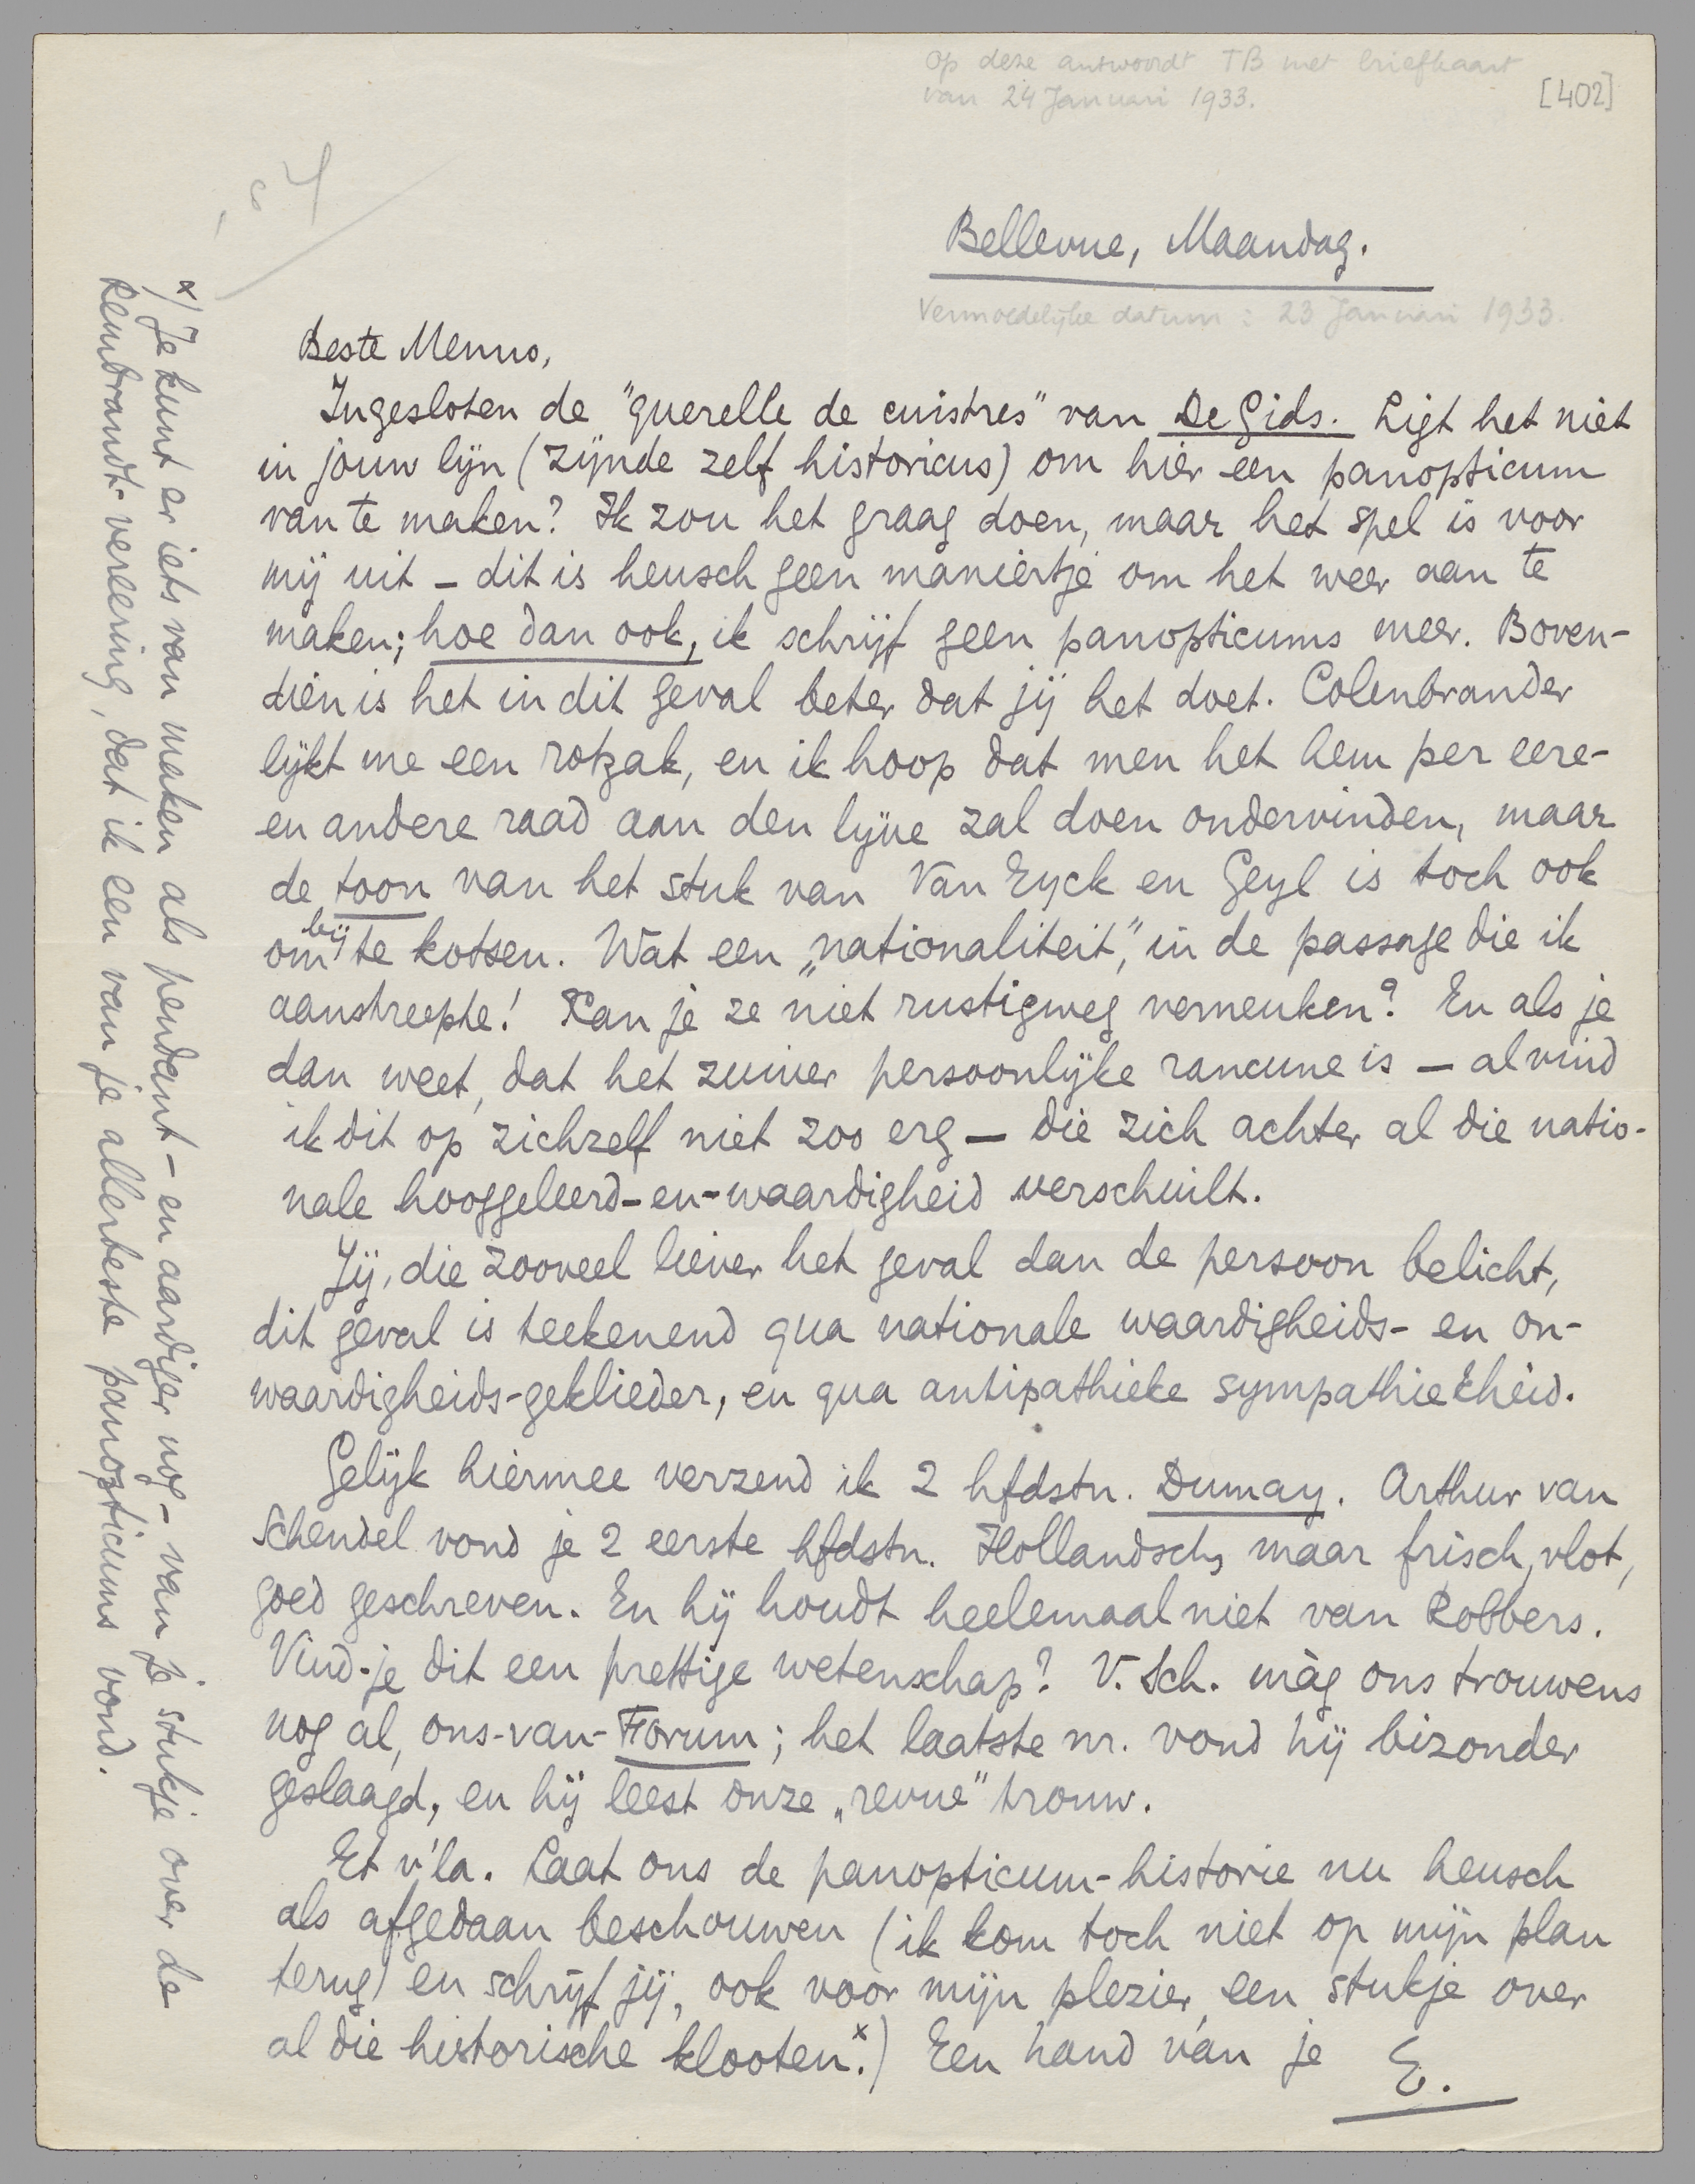 Op deze antwoordt TB met briefkaart
van 24 Januari 1933.
[402]
Bellevue, Maandag.
Vermoedelijke datum: 23 Januari 1933.
Beste Menno,
Ingesloten de "querelle de cuistres" van De Gids. Ligt het niet
in jouw lijn (zijnde zelf historicus) om hier een panopticum
van te maken? Ik zou het graag doen, maar het spel is voor
mij uit – dit is heusch geen maniertje om het weer aan te
maken; hoe dan ook, ik schrijf geen panopticums meer. Boven-
dien is het in dit geval beter dat jij het doet. Colenbrander
lijkt me een rotzak, en ik hoop dat men het hem per eere-
en andere raad aan den lijve zal doen ondervinden, maar
de toon van het stuk van Van Eyck en Geyl is toch ook
om bij te kotsen. Wat een „nationaliteit", in de passage die ik
aanstreepte! Kan je ze niet rustigweg verneuken? En als je
dan weet, dat het zuiver persoonlijke rancune is – al vind
ik dit op zichzelf niet zoo erg – die zich achter al die natio-
nale hooggeleerd-en-waardigheid verschuilt.
Jij, die zooveel liever het geval dan de persoon belicht,
dit geval is teekenend qua nationale waardigheids- en on-
waardigheids-geklieder, en qua antipathieke sympathiekheid.
Gelijk hiermee verzend ik 2 hfdstn. Dumay. Arthur van
Schendel vond je 2 eerste hfdstn. Hollandsch, maar frisch, vlot,
goed geschreven. En hij houdt heelemaal niet van Robbers.
Vind-je dit een prettige wetenschap? V. Sch. màg ons trouwens
nog al, ons-van-Forum; het laatste nr. vond hij bizonder
geslaagd, en hij leest onze „revue" trouw.
Et v'la. Laat ons de panopticum-historie nu heusch
als afgedaan beschouwen (ik kom toch niet op mijn plan
terug) en schrijf jij, ook voor mijn plezier, een stukje over
al die historische klooten.x) Een hand van je E.
x) Je kunt er iets van maken als pendant – en aardiger nog – van je stukje over de
Rembrandt-vereering, dat ik een van je allerbeste panopticums vond.